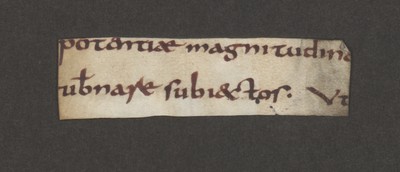 potentiae magnitudine
gubernare subiectos. Ut